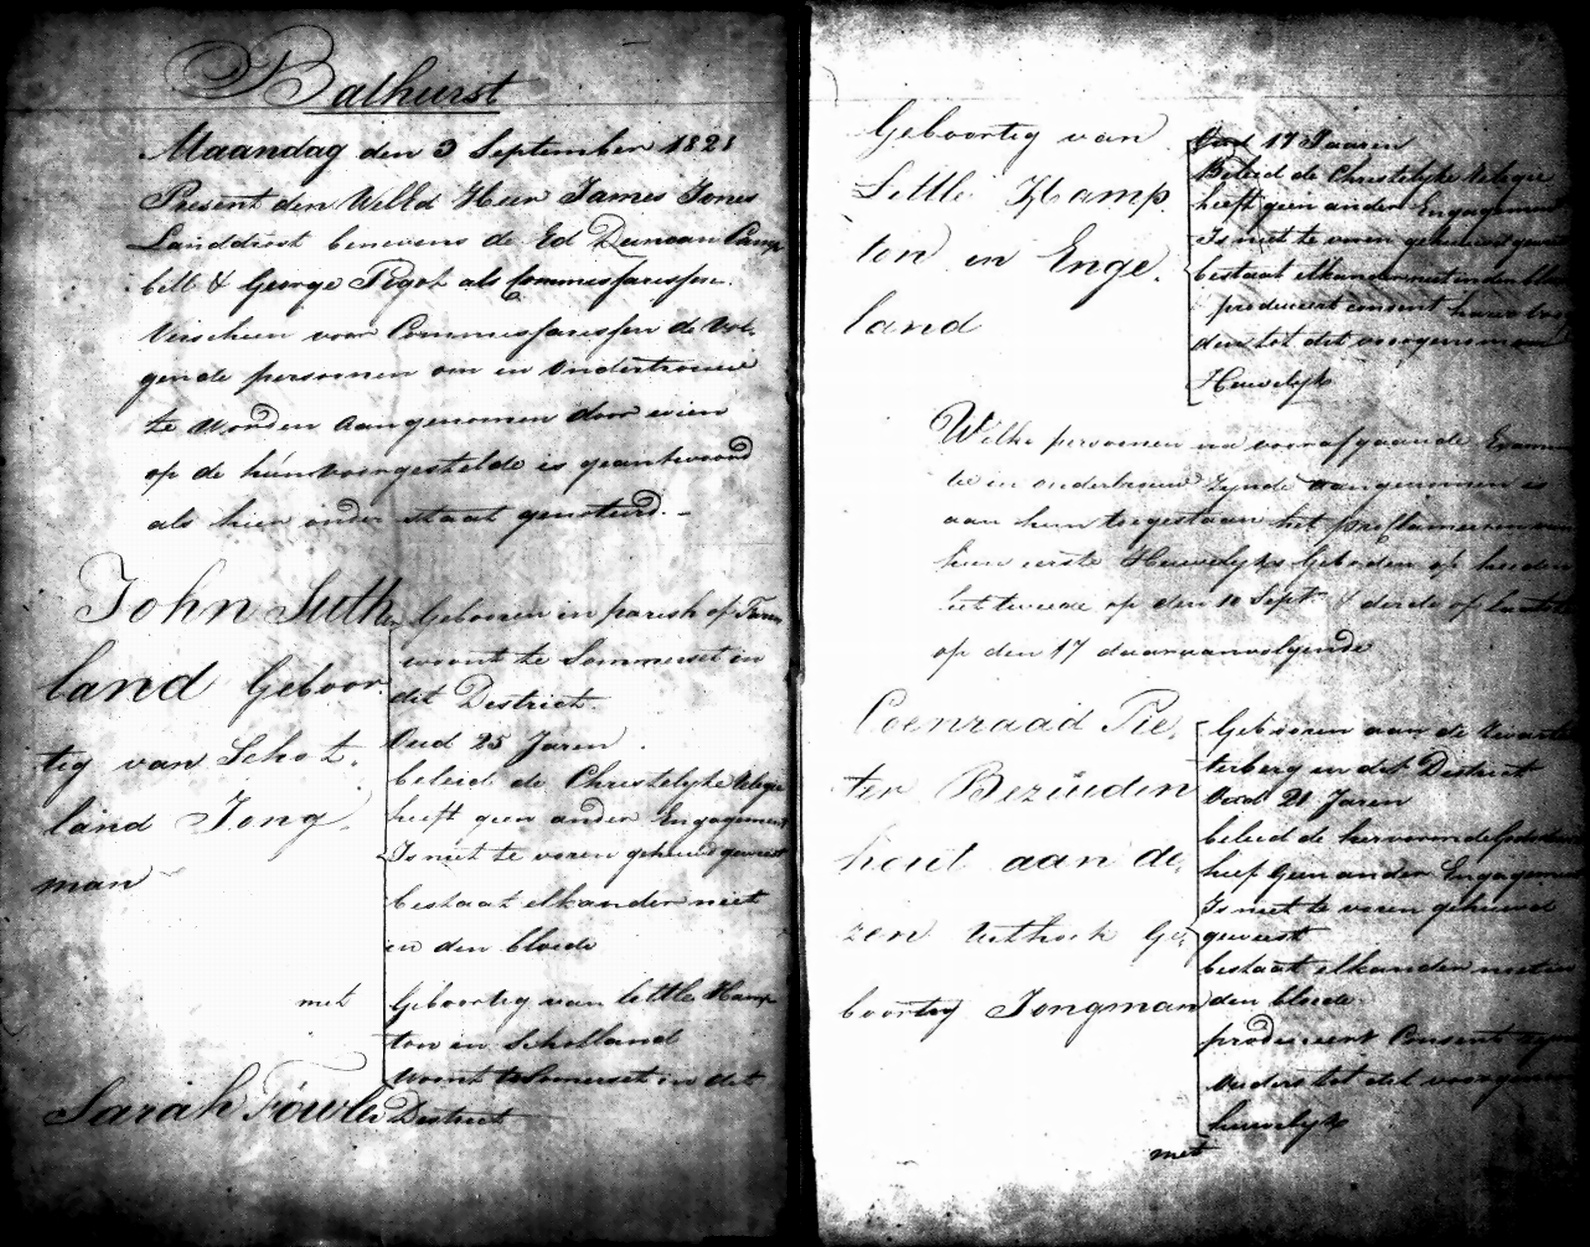 Bathurst
Maandag den 3 September 1821
Present den WelEd Heer James Jones
Landdrost benevens de Ed Duncan Camp
bell & George Pigot als Commissarissen.
Verscheen voor Commissarissen de Vol-
gende persoonen om in Ondertrouw
te worden aangenomen door wien
op de hún voorgestelde is geantwoord
als hier onder staat genoteerd. -
John Suth
land Geboor
tig van Schot.
land Jong.
man
Gebooren in parish of
woont te Sommerset in
dit District.
Oud 25 Jaren
beleid de Christelyke Religie
heeft geen ander Engagement
Is niet te voren gehuwd geweest
bestaat elkander niet
in den bloede
met
Sarah Fowler
Geboortig van Little Hamp
ton in Schotland
woont te Somerset in dit
District
Geboortig van
Little Hamp.
ton in Enge.
land
Oud 17 Jaaren
Beleid de Christelyke Religie
heeft geen ander Engagement
Is niet te voren gehuwd geweest
bestaat elkander niet in den bloede
produceert consent harer
den tot dit voorgenomen
Heuwelyk
Welke persoonen na voorafgaande Examina
tie in ondertrouw zynde aangenomen is
aan hun toegestaan het proclameeren van
hun eerste Heuwelyks Geboden op heeden
het tweede op den 10 Sept. & derde of laatste
op den 17 daaraanvolgende
Coenraad Pie.
ter Bezuiden
hout aan de.
zen Uithoek Ge.
boortig Jongman
Gebooren aan de Zwarte
terberg in dit District
Oud 21 Jaren
beleid de hervormde Godsdienst
heef Geen ander Engagement
Is niet te voren gehuwd
geweest
bestaat elkander niet in
den bloede
produceert Consent zyner
Ouders tot dit voorgenomen
huwelyk
met